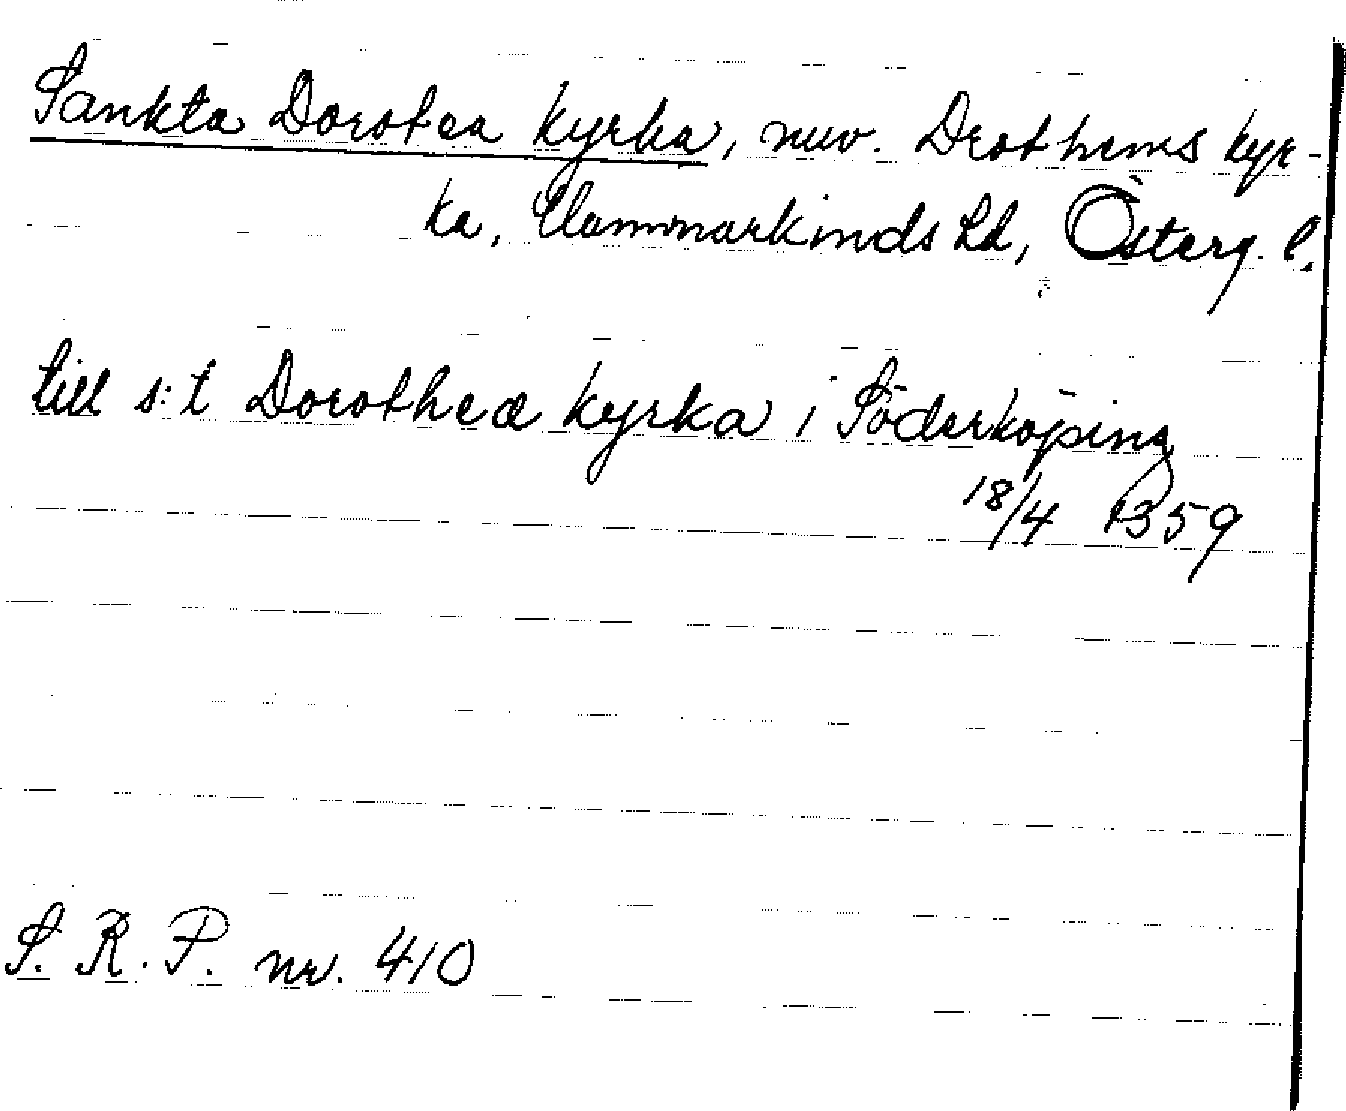 Sankta Dorotea kyrka, nuv. Drothems kyr-
ka, Hammarkinds hd, Österg. l.
till s:t Dorotheæ kyrka i Söderköping
18/4 1359
S. R. P. nr. 410